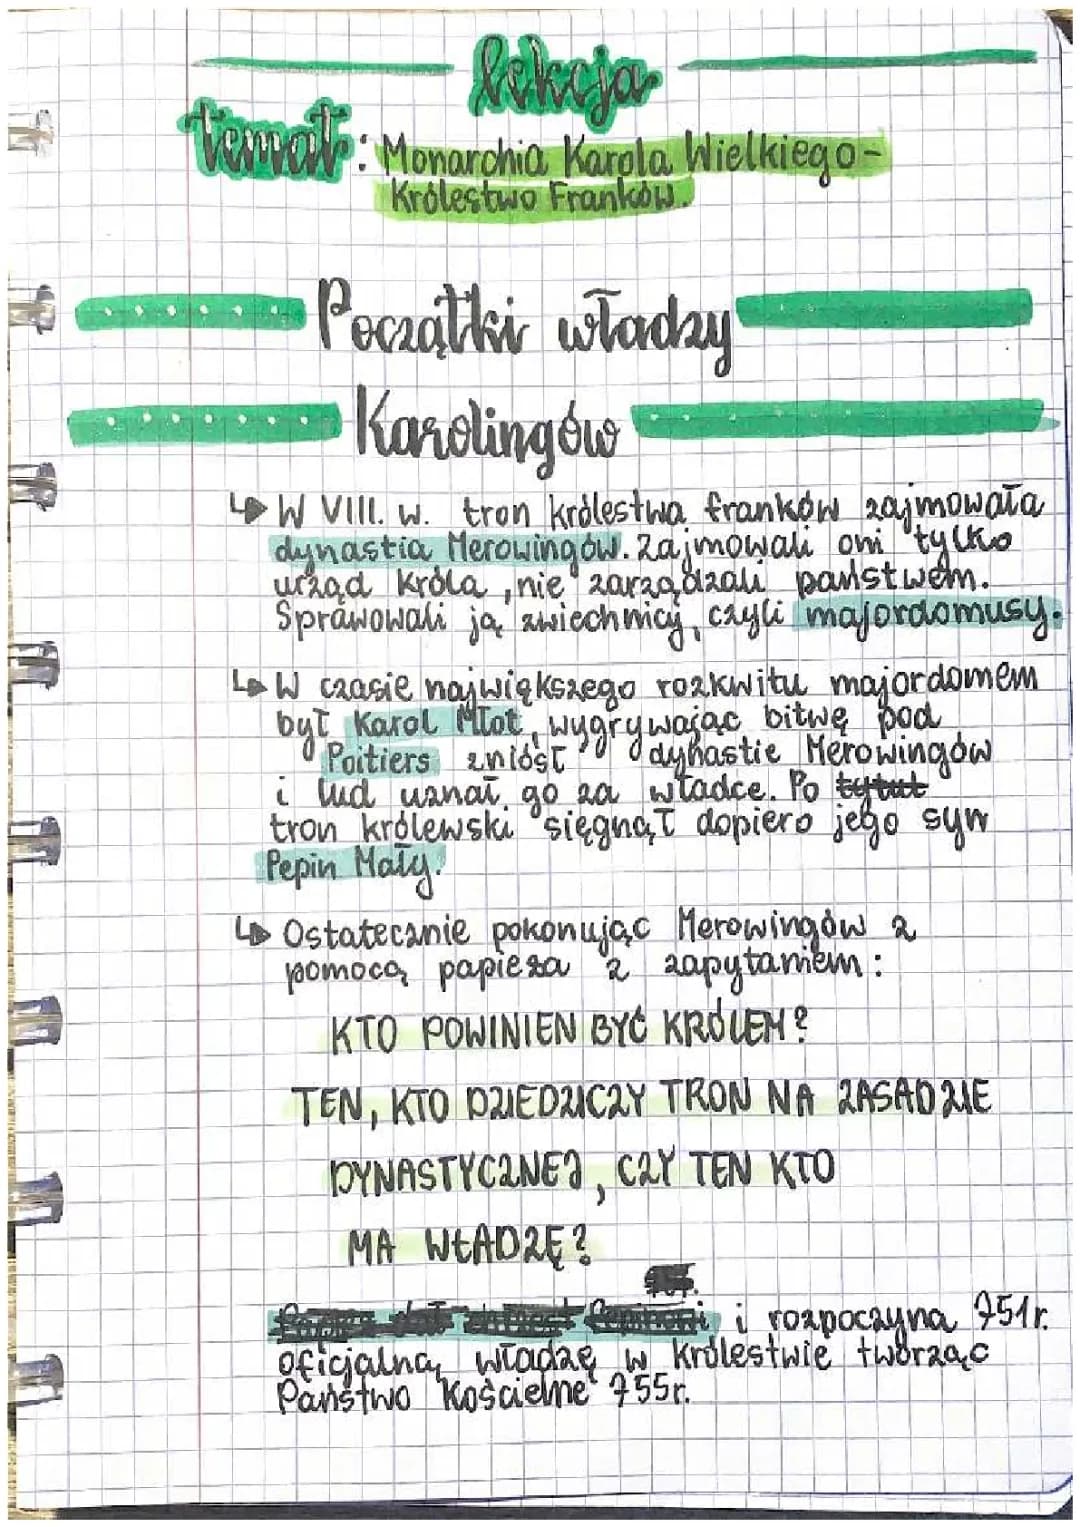 lekcja
temat: Monarchia Karola Wielkiego -
Królestwo Franków.
Początki władzy
Karolingów
↳ W VIII. w. tron królestwa franków zajmowała
dynastia Merowingów. Zajmowali oni tylko
urząd króla, nie zarządzali państwem.
Sprawowali ją zwiechnicy, czyli majordomusy.
↳ W czasie największego rozkwitu majordomem
był Karol Młot, wygrywając bitwę pod
Poitiers zniósł dynastie Merowingów
i lud uznał go za władce. Po tytuł
tron królewski sięgnął dopiero jego syn
Pepin Mały.
↳ Ostatecznie pokonując Merowingów z
pomocą papieża z zapytaniem:
KTO POWINIEN BYĆ KRÓLEM?
TEN, KTO DZIEDZICZY TRON NA ZASADZIE
DYNASTYCZNEJ, CZY TEN KTO
MA WŁADZĘ?
i rozpoczyna 751r.
oficjalną władzę w królestwie tworząc
Państwo Kościelne 755r.